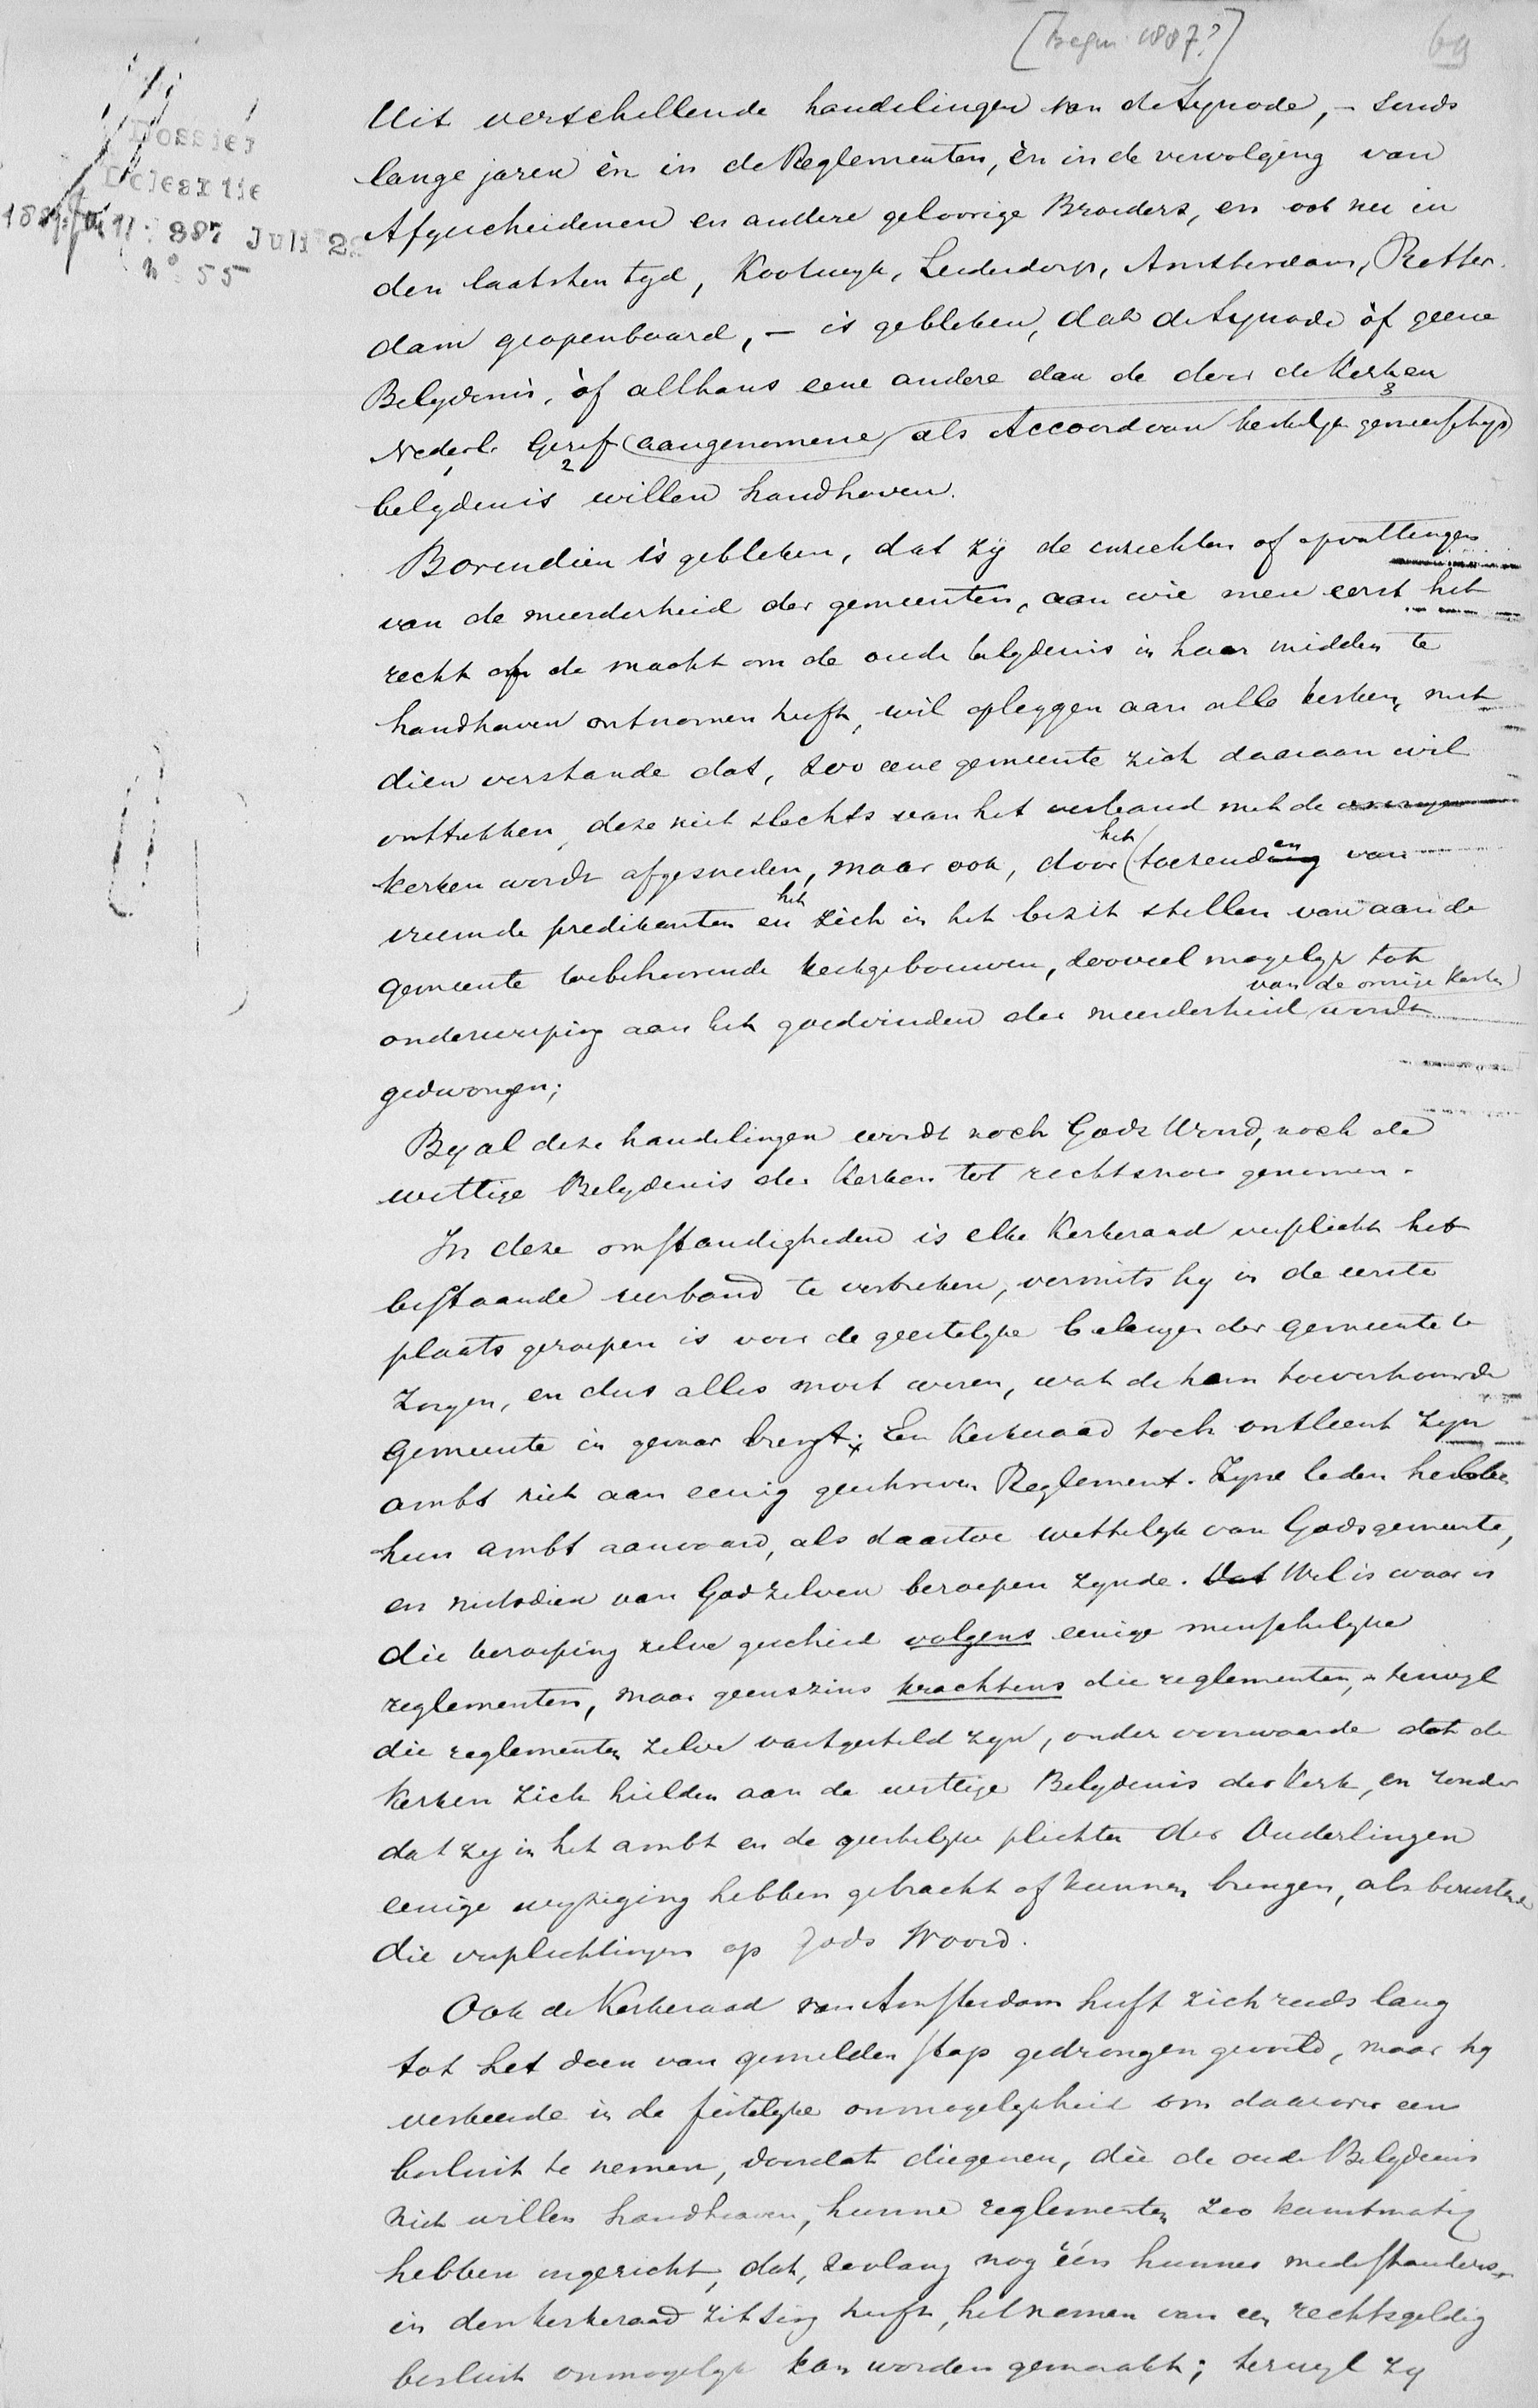 [Begin 1887?]
69
Dossier
Doleantie
1887 Juli 2
n° 55
Uit verschillende handelingen van de Synode, – sends
lange jaren èn in de Reglementen, èn in de vervolging van
Afgescheidenen en andere geloovige Broeders, en ook nu in
den laatsten tyd, Kootwyk, Leiderdorp, Amsterdam, Rotter-
dam geopenbaard, – is gebleken, dat de Synode òf geene
Belydenis, òf althans eene andere dan de door de Kerken
Nederl. Geref (aangenomene) als Accoord van kerkelyke gemeenschap
belydenis willen handhaven.
Bovendien is gebleken, dat zÿ de inzichten of opvattingen
van de meerderheid der gemeenten, aan wie men eerst het
recht of de macht om de oude belydenis in haar midden te
handhaven ontnomen heeft, wil opleggen aan alle kerken, met
dien verstande dat, zoo eene gemeente zich daaraan wil
onttrekken, deze niet slechts van het verband met de
kerken wordt afgesneden, maar ook, door het toezenden van
vreemde predikanten en het zich in het bezit stellen van aan de
gemeente toebehoorende kerkgebouwen, zooveel mogelyk tot
van de overige Kerken
onderwerping aan het goedvinden der meerderheid wordt
gedwongen;
By al deze handelingen wordt noch Gods Woord, noch de
wettige Belydenis der Kerken tot rechtsnoer genomen.
In deze omstandigheden is elke Kerkeraad verplicht het
bestaande verband te verbreken, vermits hy in de eerste
plaats geroepen is voor de geestelyke belangen der gemeente te
zorgen, en dus alles moet weren, wat de hem toevertrouwde
gemeente in gevaar brengt; Een Kerkeraad toch ontleent zyn
ambt niet aan eenig geschreven Reglement. Zyne leden hebben
hun ambt aanvaard, als daartoe wettelyk van Gods gemeente,
en mitsdien van God zelven beroepen zynde. Dat Wel is waar is
die beroeping zelve geschied volgens eenige menschelyke
reglementen, maar geenszins krachtens die reglementen, terwyl
die reglementen zelve vastgesteld zyn, onder voorwaarde dat de
Kerken zich hielden aan de wettige Belydenis der Kerk, en zonder
dat zy in het ambt en de geestelyke plichten der Ouderlingen
eenige wyziging hebben gebracht of kunnen brengen, als berustende
die verplichtingen op Gods Woord.
Ook de Kerkeraad van Amsterdam heeft zich reeds lang
tot het doen van gemelden stap gedrongen gevoeld, maar hy
verkeerde in de feitelyke onmogelykheid om daarover een
besluit te nemen, doordat diegenen, die de oude Belydenis
niet willen handhaven, hunne reglementen zoo kunstmatig
hebben ingericht, dat, zoolang nog één hunner medestanders
in den kerkeraad zitting heeft, het nemen van een rechtsgeldig
besluit onmogelyk kan worden gemaakt; terwyl zy